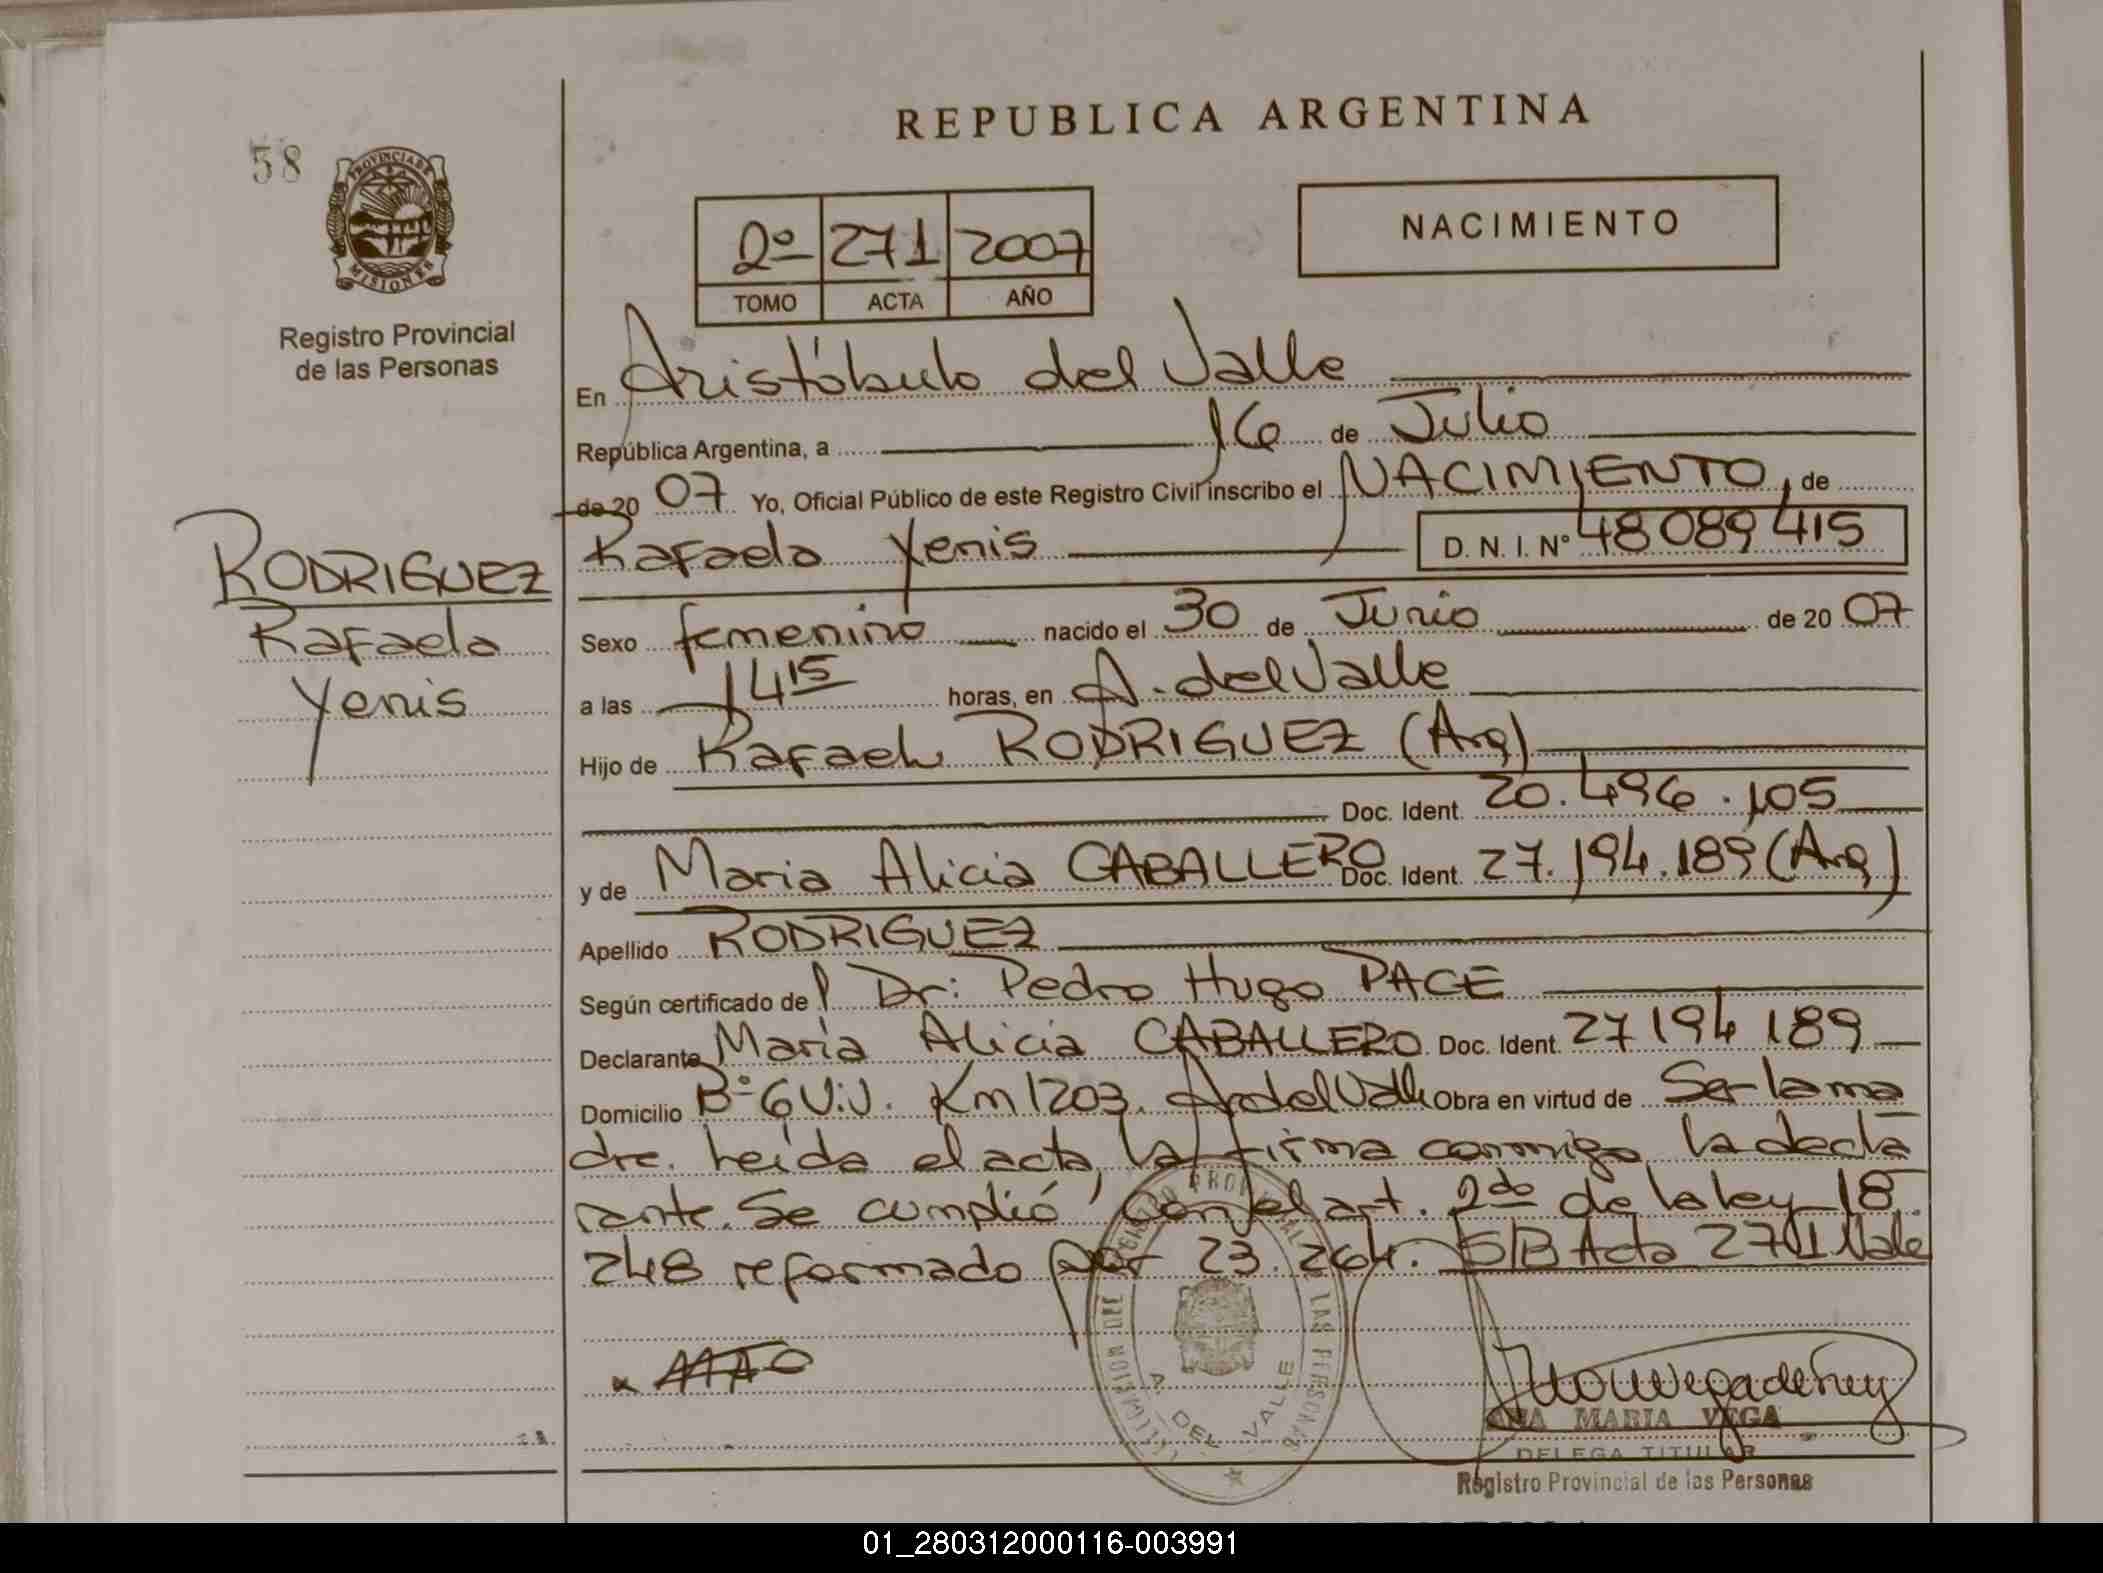 REPUBLICA ARGENTINA
58
PROVINCIA DE
MISIONES
Registro Provincial
de las Personas
2º 271 2007
TOMO ACTA AÑO
NACIMIENTO
En Aristóbulo del Valle
República Argentina, a 16 de Julio
de 20 07 Yo, Oficial Público de este Registro Civil inscribo el NACIMIENTO, de
Rafaela Yenis D. N. I. Nº 48 089 415
RODRIGUEZ
Rafaela
Yenis
Sexo femenino nacido el 30 de Junio de 20 07
a las 14 15 horas, en A. del Valle
Hijo de Rafael RODRIGUEZ (Arg)
Doc. Ident. 20.496.105
y de Maria Alicia CABALLERO Doc. Ident. 27.194.189 (Arg)
Apellido RODRIGUEZ
Según certificado del Dr: Pedro Hugo PACE
Declarante Maria Alicia CABALLERO Doc. Ident. 27 194 189
Domicilio Bº 6 Viv. Km 1203. A. del Valle Obra en virtud de Ser la ma
dre. Leida el acta, la firma conmigo la decla
rante. Se cumplió con el art. 2do de la ley 18
248 reformado por 23.264. S/B Acta 271 Vale
A. DEL VALLE
ANA MARIA VEGA
DELEGA TITULAR
Registro Provincial de las Personas
01_280312000116-003991